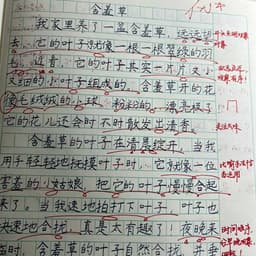 含羞草
我家里养了一盆含羞草,远远望
去,它的叶子就像一根一根翠绿的羽
毛,近看,它的叶子其实一片片又小
又细的小叶子组成的。含羞草开的花
像毛绒绒的小球,粉粉的,漂亮极了
它的花儿还会时不时散发出清香。
含羞草的叶子在清晨绽开,当我
用手轻轻地抚摸叶子时,它就像一位
害羞的小姑娘,把它的叶子慢慢合起
来了,当我快速地拍打下叶子,叶子也
快速地合拢,真是太有趣了!夜晚来
临时,含羞草的叶子自然合拢,并垂